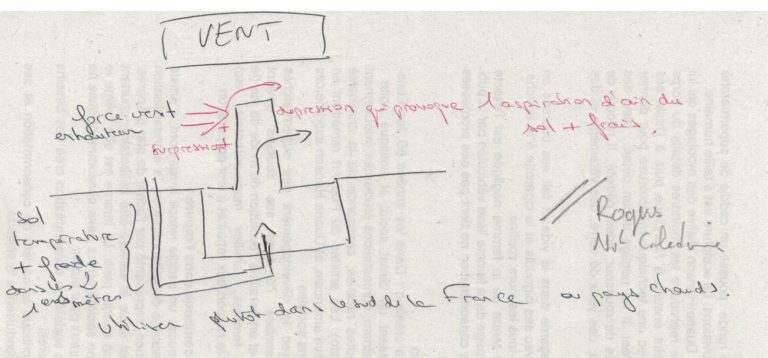 VENT
force vent
en hauteur
+
surpression
dépression qui provoque l'aspiration d'air du
sol + frais.
sol
température
+ froide
dans les 2
1ers mètres
// Rogers
Nvl Calédonie
utiliser plutôt dans le sud de la France ou pays chauds.